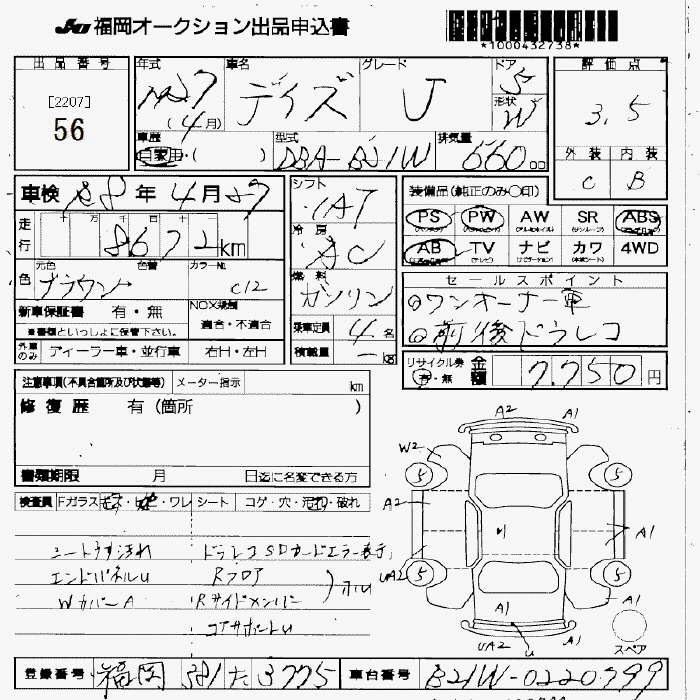 JU 福岡オークション出品申込書
*1000432738*
出品番号
[2207]
56
年式 H27 (4月)
車名 デイズ
グレード J
ドア 5
形状 W
評価点 3.5
外装 C 内装 B
車歴 自家用・( )
型式 DBA-B21W
排気量 660 cc
車検 R8年4月27
走行 十 万 千 百 十
8672 km
シフト IAT
冷房 AC
燃料 ガソリン
乗車定員 4名
積載量 - kg
装備品(純正のみ○印)
PS PW AW SR ABS
AB TV ナビ カワ 4WD
元色 ブラウン
色替
カラーNo. C12
新車保証書 有・無
※書類といっしょに保管下さい。
NOX規制 適合・不適合
外車のみ ディーラー車・並行車 右H・左H
セールスポイント
◎ワンオーナー車
◎前後ドラレコ
リサイクル券 有・無 金額 7,750円
注意事項(不具合箇所及び状態等) メーター指示 km
修復歴 有(箇所 )
書類期限 月 日迄に名変できる方
検査員 Fガラス ワレ シート コゲ・穴・汚れ・破れ
シートうす汚れ
エンドパネルU
WカバーA
ドラレコSDカードエラー表示
Rフロア
Rサイドメンバー
コアサポートU
A2 A1
W2
5 5
A2 A1
UA2 5 5
A1 A1
UA2 U A1
スペア
登録番号 福岡 581 た 3775
車台番号 B21W-0220799